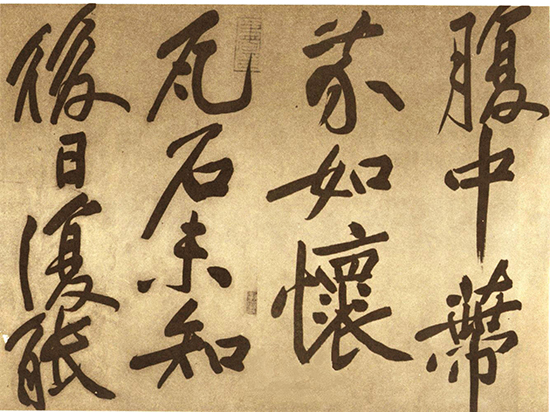 腹中蔕
芥如懷
瓦石未知
後日復能